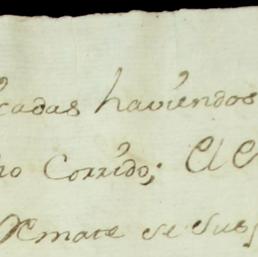 cadas haviendos
ho Corrido; El
Remate se sus